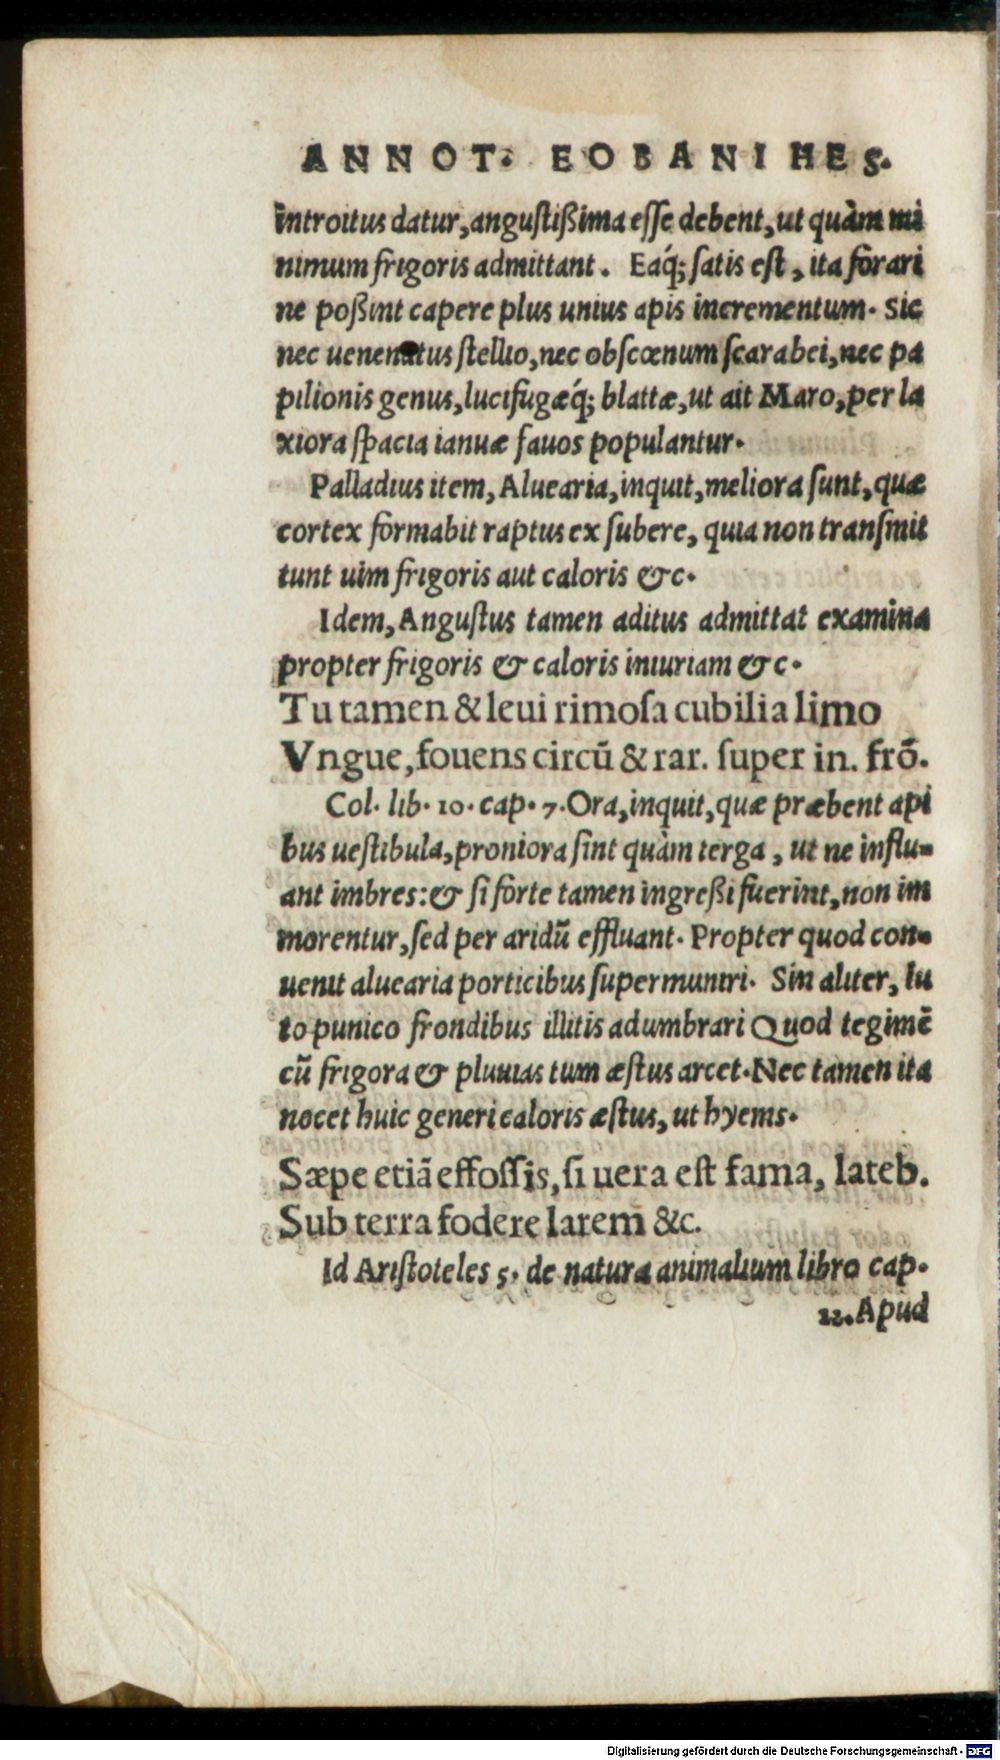 ANNOT. EOBANI HES.
introitus datur, angustißima esse debent, ut quàm mi
nimum frigoris admittant. Eaq́; satis est, ita forari
ne poßint capere plus unius apis incrementum. Sic
nec uenenatus stellio, nec obscœnum scarabei, nec pa
pilionis genus, lucifugæq́; blattæ, ut ait Maro, per la
xiora spacia ianuæ fauos populantur.
Palladius item, Aluearia, inquit, meliora sunt, quæ
cortex formabit raptus ex subere, quia non transmit
tunt uim frigoris aut caloris &c.
Idem, Angustus tamen aditus admittat examina
propter frigoris & caloris iniuriam &c.
Tu tamen & leui rimosa cubilia limo
Vngue, fouens circũ & rar. super in. frõ.
Col. lib. 10. cap. 7. Ora, inquit, quæ præbent api
bus uestibula, proniora sint quàm terga, ut ne influ-
ant imbres: & si forte tamen ingreßi fuerint, non im
morentur, sed per aridũ effluant. Propter quod con-
uenit aluearia porticibus supermuniri. Sin aliter, lu
to punico frondibus illitis adumbrari Quod tegimẽ
cũ frigora & pluuias tum æstus arcet. Nec tamen ita
nocet huic generi caloris æstus, ut hyems.
Sæpe etiã effossis, si uera est fama, lateb.
Sub terra fodere larem &c.
Id Aristoteles 5. de natura animalium libro cap.
22. Apud
Digitalisierung gefördert durch die Deutsche Forschungsgemeinschaft - DFG